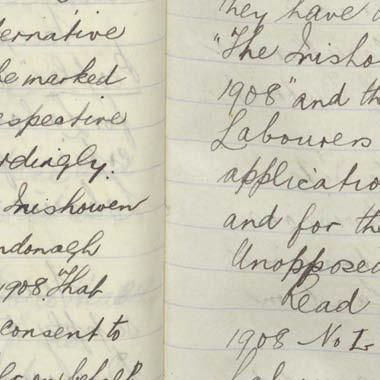 ernative
be marked
espective
rdingly.
Inishowen
ndonagh
1908 That
consent to
on behalf
they have
"The Inisho
1908" and th
Labourers
applicatio
and for the
Unopposed
Read
1908 No I